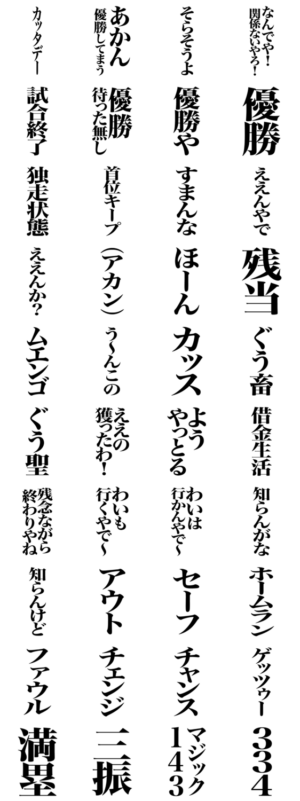 なんでや！
関係ないやろ！
優勝
ええんやで
残当
ぐう畜
借金生活
知らんがな
ホームラン
ゲッツゥー
334
そらそうよ
優勝や
すまんな
ほーん
カッス
よう
やっとる
わいは
行かんやで〜
セーフ
チャンス
マジック
143
あかん
優勝してまう
優勝
待った無し
首位キープ
（アカン）
う〜んこの
ええの
獲ったわ！
わいも
行くやで〜
アウト
チェンジ
三振
カッタデー
試合終了
独走状態
ええんか？
ムエンゴ
ぐう聖
残念ながら
終わりやね
知らんけど
ファウル
満塁